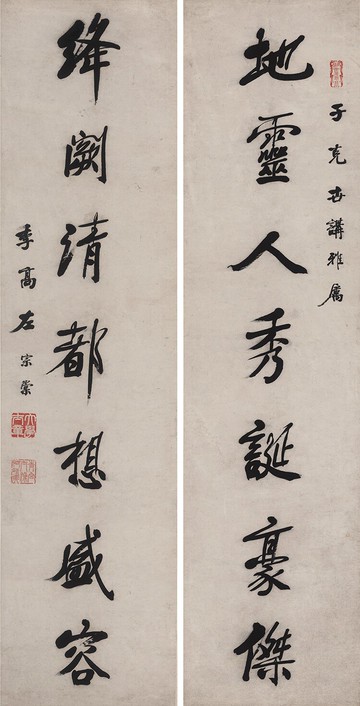 子克世講雅屬
地靈人秀誕豪傑
絳闕清都想盛容
季高左宗棠